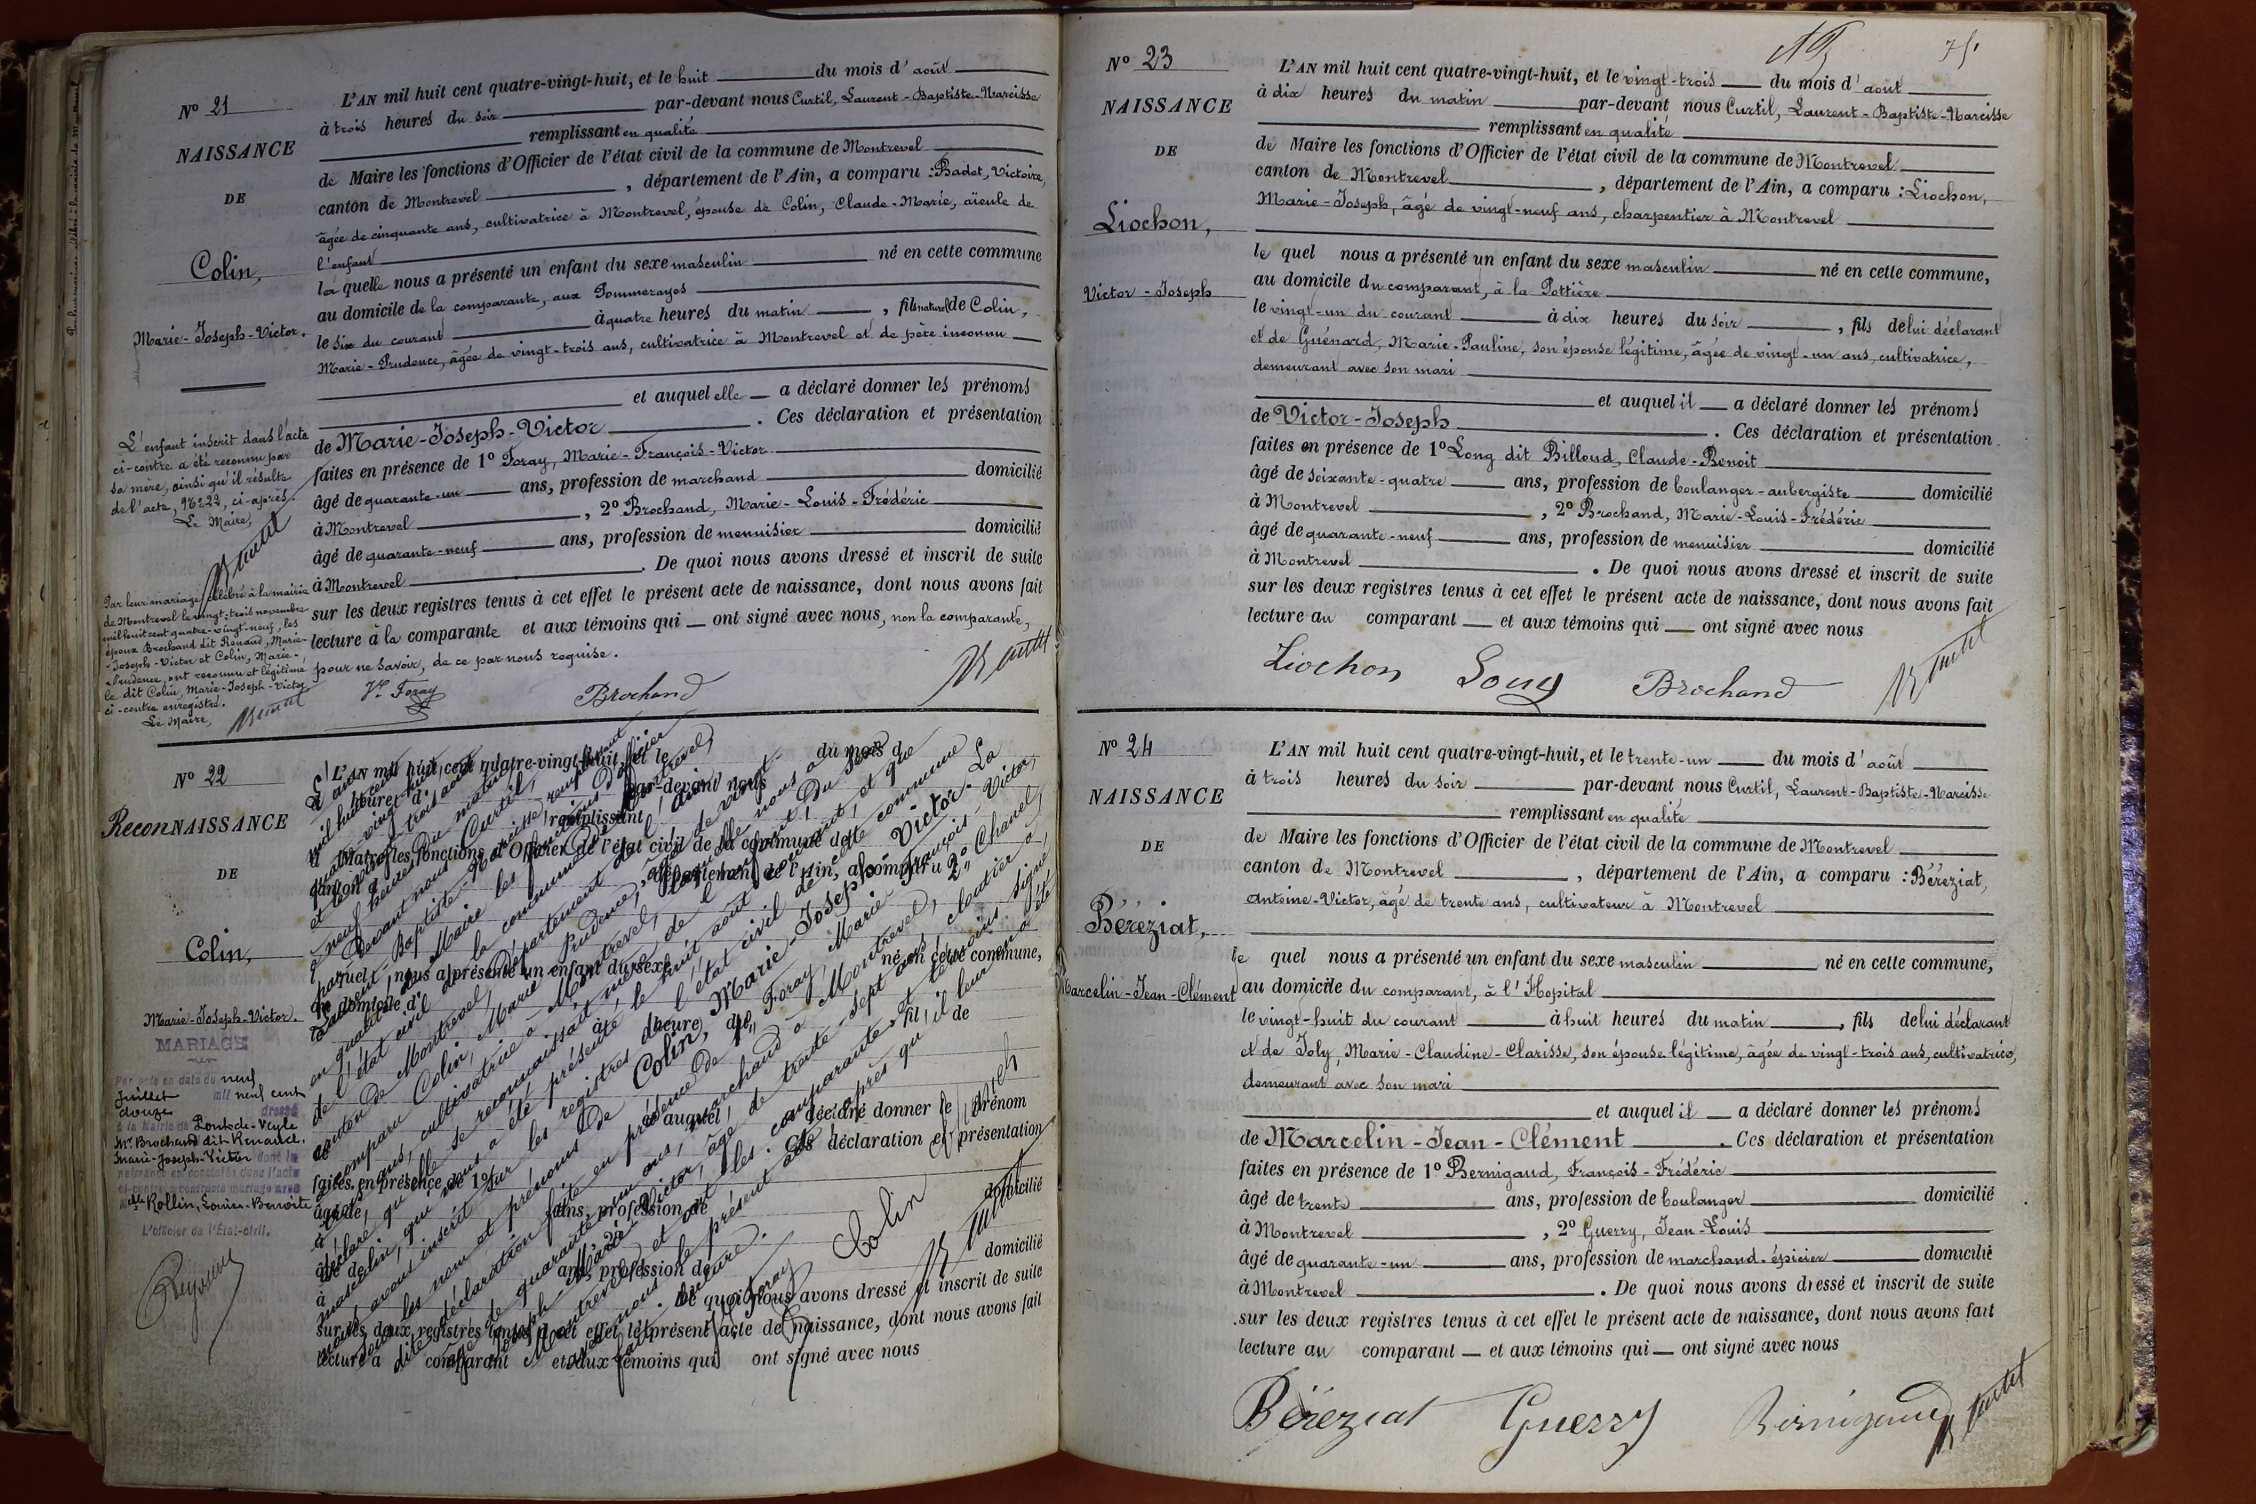 N° 21
NAISSANCE
DE
Colin,
Marie-Joseph-Victor.
L'enfant inscrit dans l'acte
ci-contre a été reconnu par
sa mère, ainsi qu'il résulte
de l'acte, N° 22, ci-après.
Le Maire,
Par leur mariage célébré à la mairie
de Montrevel le vingt-trois novembre
mil huit cent quatre-vingt-neuf, les
époux Brochand dit Renaud, Marie-
-Joseph-Victor et Colin, Marie-
-Prudence, ont reconnu et légitimé
le dit Colin, Marie-Joseph-Victor
ci-contre enregistré.
Le Maire,
L'AN mil huit cent quatre-vingt-huit, et le huit du mois d'août
à trois heures du soir par-devant nous Curtil, Laurent-Baptiste-Narcisse
remplissant en qualité
de Maire les fonctions d'Officier de l'état civil de la commune de Montrevel
canton de Montrevel , département de l'Ain, a comparu : Badet, Victoire,
âgée de cinquante ans, cultivatrice à Montrevel, épouse de Colin, Claude-Marie, aïeule de
l'enfant
la quelle nous a présenté un enfant du sexe masculin né en cette commune
au domicile de la comparante, aux Pommerayes
le six du courant à quatre heures du matin , fils naturel de Colin,
Marie-Prudence, âgée de vingt-trois ans, cultivatrice à Montrevel et de père inconnu
et auquel elle a déclaré donner les prénoms
de Marie-Joseph-Victor . Ces déclaration et présentation
faites en présence de 1° Foray, Marie-François-Victor
âgé de quarante-un ans, profession de marchand domicilié
à Montrevel , 2° Brochand, Marie-Louis-Frédéric
âgé de quarante-neuf ans, profession de menuisier domicilié
à Montrevel . De quoi nous avons dressé et inscrit de suite
sur les deux registres tenus à cet effet le présent acte de naissance, dont nous avons fait
lecture à la comparante et aux témoins qui ont signé avec nous, non la comparante,
pour ne savoir, de ce par nous requise.
Vor Foray Brochand
N° 22
ReconNAISSANCE
DE
Colin,
Marie-Joseph-Victor.
MARIAGE
Par acte en date du neuf
Juillet mil neuf cent
douze dressé
à la Mairie de Pont-de-Veyle
Mr Brochand dit Renaud,
Marie-Joseph-Victor dont la
naissance est constatée dans l'acte
ci-contre a contracté mariage avec
Melle Rollin, Louise-Benoite
L'officier de l'État-civil.
L'AN mil huit cent quatre-vingt-huit, et le du mois d
heure d par-devant nous
remplissant
d Maire les fonctions d'Officier de l'état civil de la commune de
canton d , département de l'Ain, a comparu
quel nous a présenté un enfant du sexe né en cette commune,
au domicile d
le à heure d , fil de
et auquel a déclaré donner le prénom
de Ces déclaration et présentation
faites en présence de 1°
âgé de ans, profession de domicilié
à
âgé de ans, profession de domicilié
à . De quoi nous avons dressé et inscrit de suite
sur les deux registres tenus à cet effet le présent acte de naissance, dont nous avons fait
lecture à comparant et aux témoins qui ont signé avec nous
L'an
mil huit cent
quatre-vingt-huit,
et le vingt-trois août
à neuf heures du matin,
par devant nous Curtil,
Laurent-Baptiste-Narcisse, remplissant
en qualité de Maire les fonctions d'officier
de l'état civil de la commune de Montrevel,
canton de Montrevel, département de l'Ain,
a comparu Colin, Marie-Prudence, âgée de vingt-
trois ans, cultivatrice à Montrevel, laquelle nous a
déclaré qu'elle se reconnaissait mère de l'enfant du sexe
masculin, qui nous a été présenté le huit août courant, et que
nous avons inscrit sur les registres de l'état civil de cette commune
sous les nom et prénoms de Colin, Marie-Joseph-Victor. La
dite déclaration faite en présence de 1° Foray, Marie-François-Victor,
âgé de quarante-un ans, marchand à Montrevel, 2° Chanel,
Joseph-Marie-Victor, âgé de trente-sept ans, cloutier à
Montrevel, et ont les comparante et témoins signé
avec nous le présent acte après qu'il leur en a été
fait lecture.
Vor Foray Colin
Chanel
75.
N° 23
NAISSANCE
DE
Liochon,
Victor-Joseph
L'AN mil huit cent quatre-vingt-huit, et le vingt-trois du mois d'août
à dix heures du matin par-devant nous Curtil, Laurent-Baptiste-Narcisse
remplissant en qualité
de Maire les fonctions d'Officier de l'état civil de la commune de Montrevel
canton de Montrevel , département de l'Ain, a comparu : Liochon,
Marie-Joseph, âgé de vingt-neuf ans, charpentier à Montrevel
le quel nous a présenté un enfant du sexe masculin né en cette commune,
au domicile du comparant, à la Pottière
le vingt-un du courant à dix heures du soir , fils de lui déclarant
et de Guénard, Marie-Pauline, son épouse légitime, âgée de vingt-un ans, cultivatrice,
demeurant avec son mari
et auquel il a déclaré donner les prénoms
de Victor-Joseph . Ces déclaration et présentation
faites en présence de 1° Long dit Billoud, Claude-Benoit
âgé de soixante-quatre ans, profession de boulanger-aubergiste domicilié
à Montrevel , 2° Brochand, Marie-Louis-Frédéric
âgé de quarante-neuf ans, profession de menuisier domicilié
à Montrevel . De quoi nous avons dressé et inscrit de suite
sur les deux registres tenus à cet effet le présent acte de naissance, dont nous avons fait
lecture au comparant et aux témoins qui ont signé avec nous
Liochon Long Brochand
N° 24
NAISSANCE
DE
Béréziat,
Marcelin-Jean-Clément
L'AN mil huit cent quatre-vingt-huit, et le trente-un du mois d'août
à trois heures du soir par-devant nous Curtil, Laurent-Baptiste-Narcisse
remplissant en qualité
de Maire les fonctions d'Officier de l'état civil de la commune de Montrevel
canton de Montrevel , département de l'Ain, a comparu : Béréziat,
Antoine-Victor, âgé de trente ans, cultivateur à Montrevel
le quel nous a présenté un enfant du sexe masculin né en cette commune,
au domicile du comparant, à l'Hopital
le vingt-huit du courant à huit heures du matin , fils de lui déclarant
et de Joly, Marie-Claudine-Clarisse, son épouse légitime, âgée de vingt-trois ans, cultivatrice,
demeurant avec son mari
et auquel il a déclaré donner les prénoms
de Marcelin-Jean-Clément . Ces déclaration et présentation
faites en présence de 1° Bernigaud, François-Frédéric
âgé de trente ans, profession de boulanger domicilié
à Montrevel , 2° Guerry, Jean-Louis
âgé de quarante-un ans, profession de marchand-épicier domicilié
à Montrevel . De quoi nous avons dressé et inscrit de suite
sur les deux registres tenus à cet effet le présent acte de naissance, dont nous avons fait
lecture au comparant et aux témoins qui ont signé avec nous
Béréziat Guerry Bernigaud